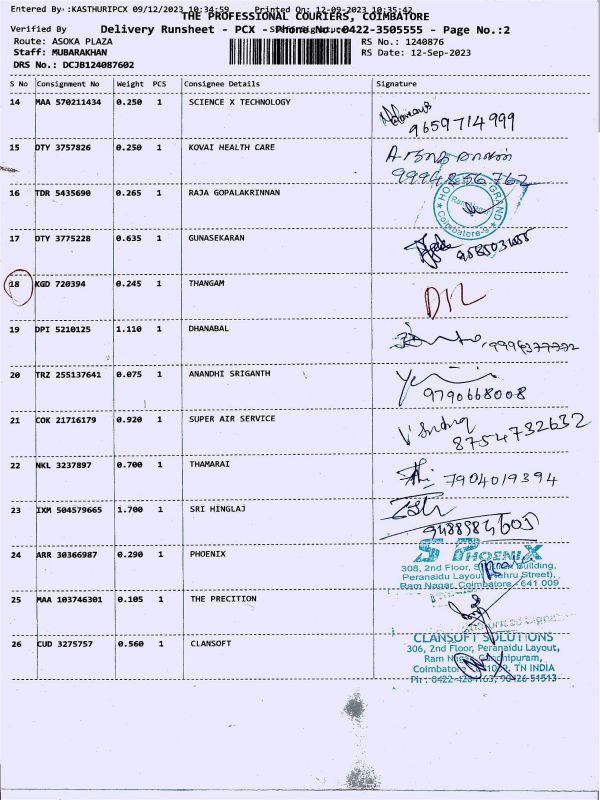 Entered By :KASTHURIPCX 09/12/2023 10:34:59 Printed On: 12-09-2023 10:35:42
THE PROFESSIONAL COURIERS, COIMBATORE
Verified By Delivery Runsheet - PCX - Phone No.:0422-3505555 - Page No.:2
Route: ASOKA PLAZA RS No.: 1240876
Staff: MUBARAKHAN RS Date: 12-Sep-2023
DRS No.: DCJB124087602
S No Consignment No Weight PCS Consignee Details Signature
14 MAA 570211434 0.250 1 SCIENCE X TECHNOLOGY
9659714999
15 DTY 3757826 0.250 1 KOVAI HEALTH CARE
16 TDR 5435690 0.265 1 RAJA GOPALAKRINNAN
GRAND
Coimbatore-9
17 DTY 3775228 0.635 1 GUNASEKARAN
18 KGD 720394 0.245 1 THANGAM
19 DPI 5210125 1.110 1 DHANABAL
20 TRZ 255137641 0.075 1 ANANDHI SRIGANTH
9790668008
21 COK 21716179 0.920 1 SUPER AIR SERVICE
8754732632
22 NKL 3237897 0.700 1 THAMARAI
7904019394
23 IXM 504579665 1.700 1 SRI HINGLAJ
24 ARR 30366987 0.290 1 PHOENIX
S PHOENIX
308, 2nd Floor, Building,
Peranaidu Layout (Nehru Street),
Ram Nagar, Coimbatore - 641 009
25 MAA 103746301 0.105 1 THE PRECITION
26 CUD 3275757 0.560 1 CLANSOFT
CLANSOFT SOLUTIONS
306, 2nd Floor, Peranaidu Layout,
Ram Nagar, Gandhipuram,
Coimbatore TN INDIA